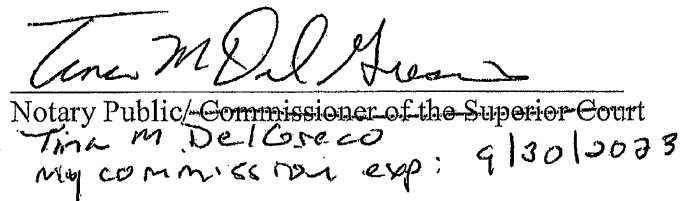 Tina M Del Greco
Notary Public/ Commissioner of the Superior Court
Tina M DelGreco
My commission exp: 9/30/2023